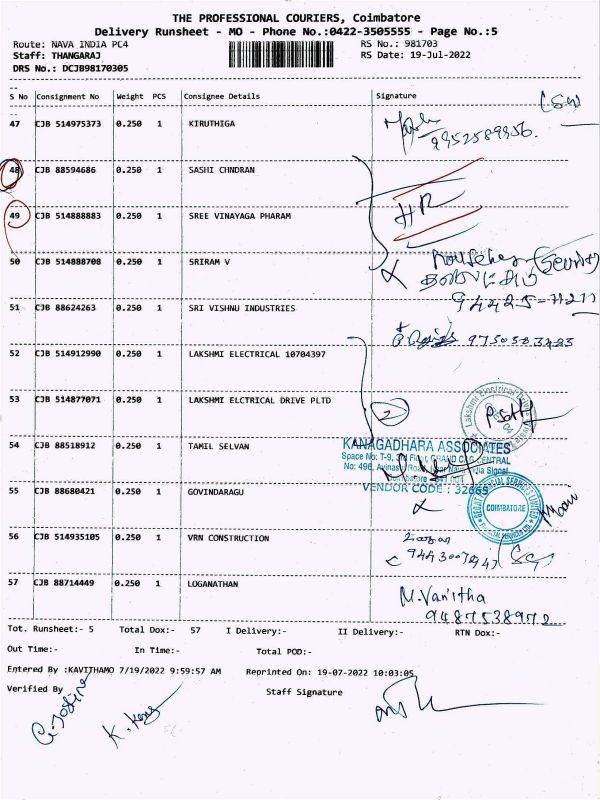 THE PROFESSIONAL COURIERS, Coimbatore
Delivery Runsheet - MO - Phone No.:0422-3505555 - Page No.:5
Route: NAVA INDIA PC4 RS No.: 981703
Staff: THANGARAJ RS Date: 19-Jul-2022
DRS No.: DCJB98170305
S No Consignment No Weight PCS Consignee Details Signature
47 CJB 514975373 0.250 1 KIRUTHIGA
9952589956.
48 CJB 88594686 0.250 1 SASHI CHNDRAN
49 CJB 514888883 0.250 1 SREE VINAYAGA PHARAM
HR
50 CJB 514888708 0.250 1 SRIRAM V
(Security)
94425-11211
51 CJB 88624263 0.250 1 SRI VISHNU INDUSTRIES
9750503423
52 CJB 514912990 0.250 1 LAKSHMI ELECTRICAL 10704397
53 CJB 514877071 0.250 1 LAKSHMI ELCTRICAL DRIVE PLTD
2
Lakshmi Electrical
54 CJB 88518912 0.250 1 TAMIL SELVAN
KANAGADHARA ASSOCIATES
Space No: T-9,
No: 496,
VENDOR CODE : 32669
55 CJB 88680421 0.250 1 GOVINDARAGU
COIMBATORE
56 CJB 514935105 0.250 1 VRN CONSTRUCTION
57 CJB 88714449 0.250 1 LOGANATHAN
M. Vanitha
9487538972
Tot. Runsheet:- 5 Total Dox:- 57 I Delivery:- II Delivery:- RTN Dox:-
Out Time:- In Time:- Total POD:-
Entered By :KAVITHAMO 7/19/2022 9:59:57 AM Reprinted On: 19-07-2022 10:03:05
Verified By Staff Signature